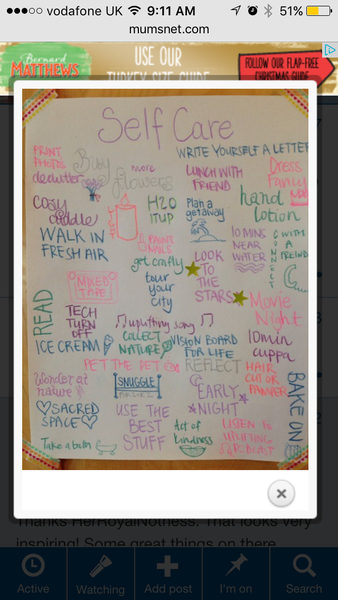 vodafone UK 9:11 AM 51%
mumsnet.com
Bernard
MATTHEWS
USE OUR
TURKEY SIZE GUIDE
FOLLOW OUR FLAP-FREE
CHRISTMAS GUIDE
Self Care
PRINT
PHOTOS
declutter
Buy
more
flowers
WRITE YOURSELF A LETTER
LUNCH WITH
FRIEND
Dress
Fancy
Cosy
cuddle
H2O
IT UP
Plan a
getaway
hand
lotion
WALK IN
FRESH AIR
PAINT
NAILS
10 MINS
NEAR
WATER
CONNECT
WITH
A
FRIEND
get crafty
LOOK
TO
THE
STARS
MIXED
TAPE
tour
your
city
READ
TECH
TURN
OFF
uplifting song
Movie
Night
ICE CREAM
COLLECT
NATURE
VISION BOARD
FOR LIFE
10min
cuppa
PET THE PET
REFLECT
HAIR
CUT OR
PAMPER
Wonder at
nature
SNUGGLE
EARLY
NIGHT
BAKE ON
SACRED
SPACE
USE THE
BEST
STUFF
Take a bath
Act of
kindness
LISTEN TO
UPLIFTING
PODCAST
Thanks HerRoyalNotness. That looks very
inspiring! Some great things on there
Active
Watching
Add post
I'm on
Search